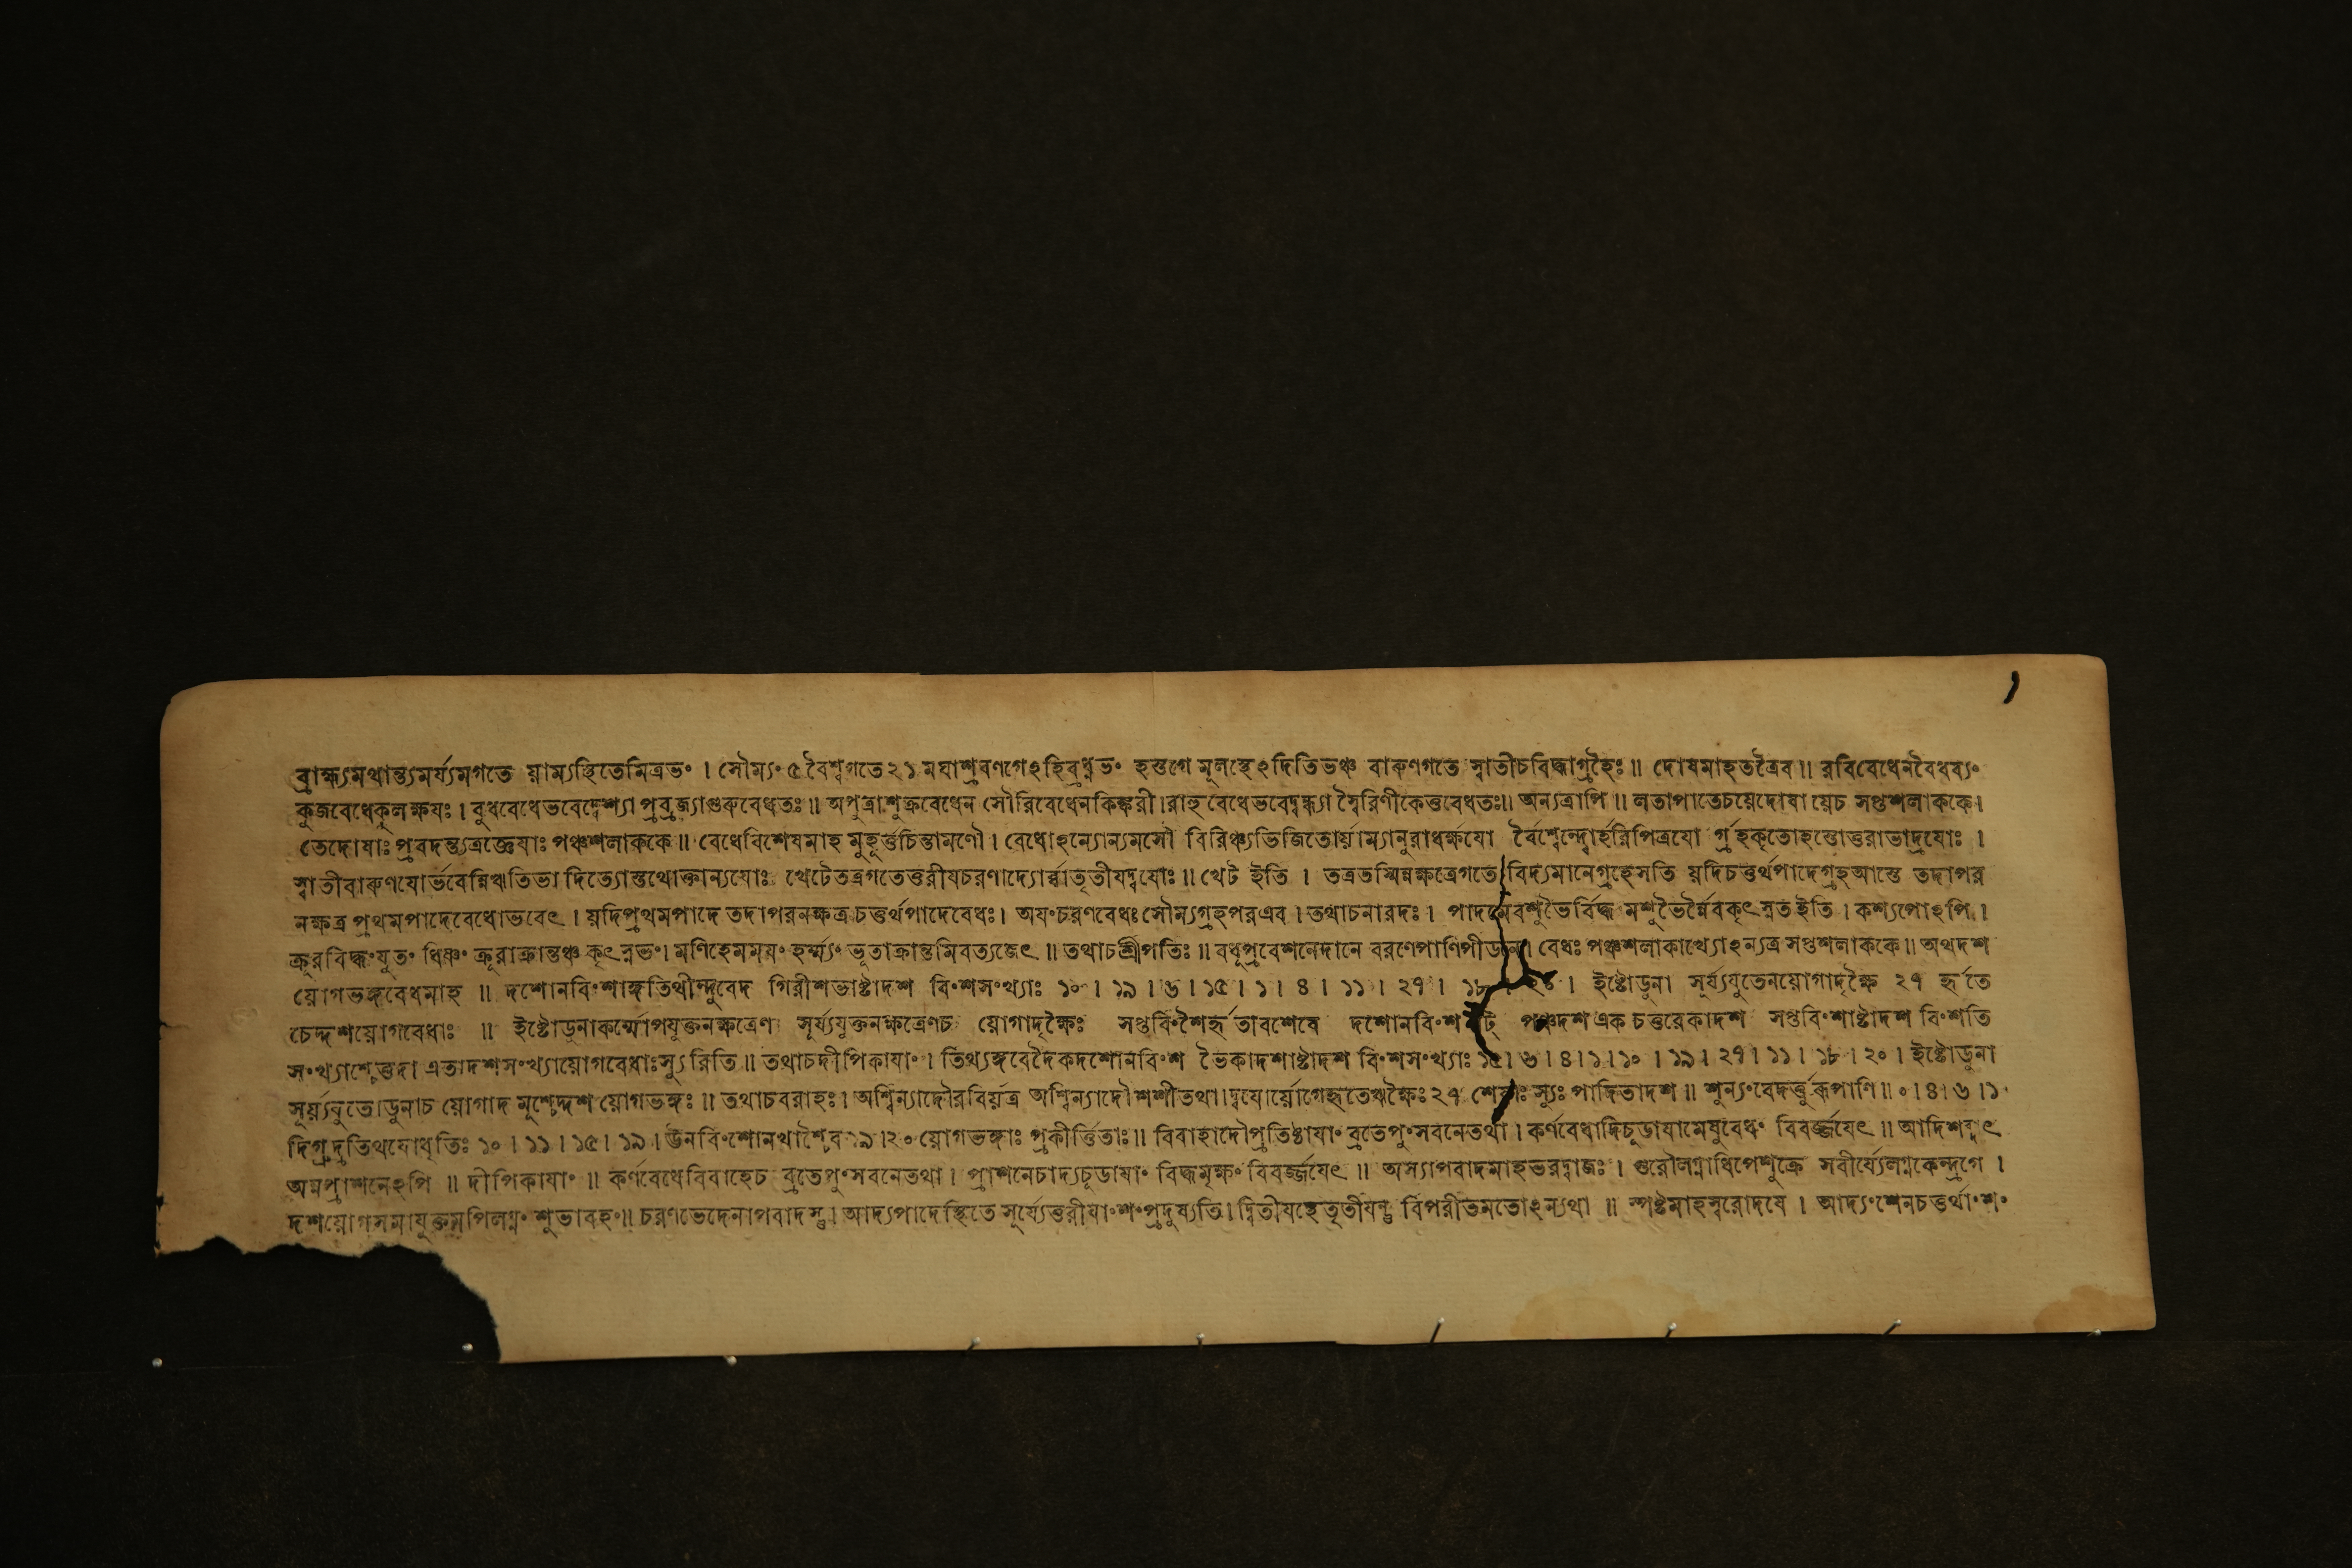 ১
ব্রাহ্ম্যমথান্ত্যমর্য্যমগতে য়াম্যস্থিতেমিত্রভং । সৌম্যং ৫ বৈশ্বগতে ২১ মঘাশ্রবণগেঽহির্ব্রধ্নভং হস্তগে মূলস্থেঽদিতিভঞ্চ বারুণগতে স্বাতীচবিদ্ধাগ্রহৈঃ ॥ দোষমাহতত্রৈব ॥ রবিবেধেনবৈধব্যং
কুজবেধেকুলক্ষযঃ । বুধবেধেভবেদ্বেশ্যা প্রব্রজ্যাগুরুবেধতঃ ॥ অপুত্রাশুক্রবেধেন সৌরিবেধেনকিঙ্করী । রাহুবেধেভবেদ্বন্ধ্যা স্বৈরিণীকেতুবেধতঃ ॥ অন্যত্রাপি ॥ লতাপাতেচয়েদোষা য়েচ সপ্তশলাককে ।
তেদোষাঃ প্রবদন্ত্যত্রজ্ঞেযাঃ পঞ্চশলাককে ॥ বেধেবিশেষমাহ মুহূর্ত্তচিন্তামণৌ । বেধোঽন্যোন্যমসৌ বিরিঞ্চ্যভিজিতোর্য়াম্যানুরাধর্ক্ষযো র্বৈশ্বেন্দ্বোর্হরিপিত্রযো র্গ্রহকৃতোহস্তোত্তরাভাদ্রযোঃ ।
স্বাতীবারুণযোর্ভবেন্নিঋতিভা দিত্যোস্তথোক্তান্যযোঃ খেটেতত্রগতেতুরীযচরণাদ্যোর্ব্বাতৃতীযদ্বযোঃ ॥ খেট ইতি । তত্রতস্মিন্নক্ষত্রেগতে বিদ্যমানেগ্রহেসতি য়দিচতুর্থপাদেগ্রহআস্তে তদাপর
নক্ষত্র প্রথমপাদেবেধোভবেৎ । য়দিপ্রথমপাদে তদাপরনক্ষত্র চতুর্থপাদেবেধঃ । অযংচরণবেধঃ সৌম্যগ্রহপরএব । তথাচনারদঃ । পাদমেবশুভৈর্বিদ্ধ মশুভৈর্ন্নৈবকৃৎস্নতইতি । কশ্যপোঽপি ।
ক্রূরবিদ্ধংযুতং ধিষ্ণ্যং ক্রূরাক্রান্তঞ্চ কৃৎস্নভং । মণিহেমময়ং হর্ম্ম্যং ভূতাক্রান্তমিবত্যজেৎ ॥ তথাচশ্রীপতিঃ ॥ বধূপ্রবেশনেদানে বরণেপাণিপীডনে । বেধঃ পঞ্চশলাকাখ্যোঽন্যত্র সপ্তশলাককে ॥ অথদশ
য়োগভঙ্গবেধমাহ ॥ দশোনবিংশাঙ্গতিথীন্দুবেদ গিরীশভাষ্টাদশ বিংশসংখ্যাঃ ১০ । ১৯ । ৬ । ১৫ । ১ । ৪ । ১১ । ২৭ । ১৮ । ২০ । ইষ্টোডুনা সূর্য্যযুতেনয়োগাদৃক্ষৈ ২৭ র্হৃতে
চেদ্দশয়োগবেধাঃ ॥ ইষ্টোডুনাকর্ম্মোপযুক্তনক্ষত্রেণ সূর্য্যযুক্তনক্ষত্রেণচ য়োগাদৃক্ষৈঃ সপ্তবিংশৈর্হৃতাবশেষে দশোনবিংশ ষট্ পঞ্চদশ এক চতুরেকাদশ সপ্তবিংশাষ্টাদশ বিংশতি
সংখ্যাশ্চেত্তদা এতাদশসংখ্যায়োগবেধাঃস্যু রিতি ॥ তথাচদীপিকাযাং । তিথ্যঙ্গবেদৈকদশোনবিংশ ভৈকাদশাষ্টাদশ বিংশসংখ্যাঃ ১৫ । ৬ । ৪ । ১ । ১০ । ১৯ । ২৭ । ১১ । ১৮ । ২০ । ইষ্টোডুনা
সূর্য়্যযুতোডুনাচ য়োগাদ মূশ্চেদ্দশ য়োগভঙ্গঃ ॥ তথাচবরাহঃ । অশ্বিন্যাদৌরবির্য়ত্র অশ্বিন্যাদৌ শশীতথা । দ্বযোর্য়োগেহৃতেঋক্ষৈঃ ২৭ শেষাঃ স্যুঃ পাদিতাদশ ॥ শূন্যংবেদর্ত্তুরূপাণি ॥ ০ । ৪ । ৬ । ১
দিগ্রুদ্রতিথযোধৃতিঃ ১০ । ১১ । ১৫ । ১৯ । ঊনবিংশোনখাশ্চৈব ১৯ । ২০ য়োগভঙ্গাঃ প্রকীর্ত্তিতাঃ ॥ বিবাহাদৌপ্রতিষ্ঠাযাং ব্রতেপুংসবনেতথা । কর্ণবেধাদিচূডাযামেষুবেধং বিবর্জ্জযেৎ ॥ আদিশব্দাৎ
অন্নপ্রাশনেঽপি ॥ দীপিকাযাং ॥ কর্ণবেধেবিবাহেচ ব্রতেপুংসবনেতথা । প্রাশনেচাদ্যচূডাযাং বিদ্ধমৃক্ষং বিবর্জ্জযেৎ ॥ অস্যাপবাদমাহভরদ্বাজঃ । গুরৌলগ্নাধিপেশুক্রে সবীর্য্যেলগ্নকেন্দ্রগে ।
দশয়োগসমাযুক্তমপিলগ্নং শুভাবহং ॥ চরণভেদেনাপবাদস্তু । আদ্যপাদেস্থিতে সূর্য্যেতুরীযাংশংপ্রদুষ্যতি । দ্বিতীযস্থেতৃতীযন্তু বিপরীতমতোঽন্যথা ॥ স্পষ্টমাহস্বরোদযে । আদ্যংশেনচতুর্থাংশং